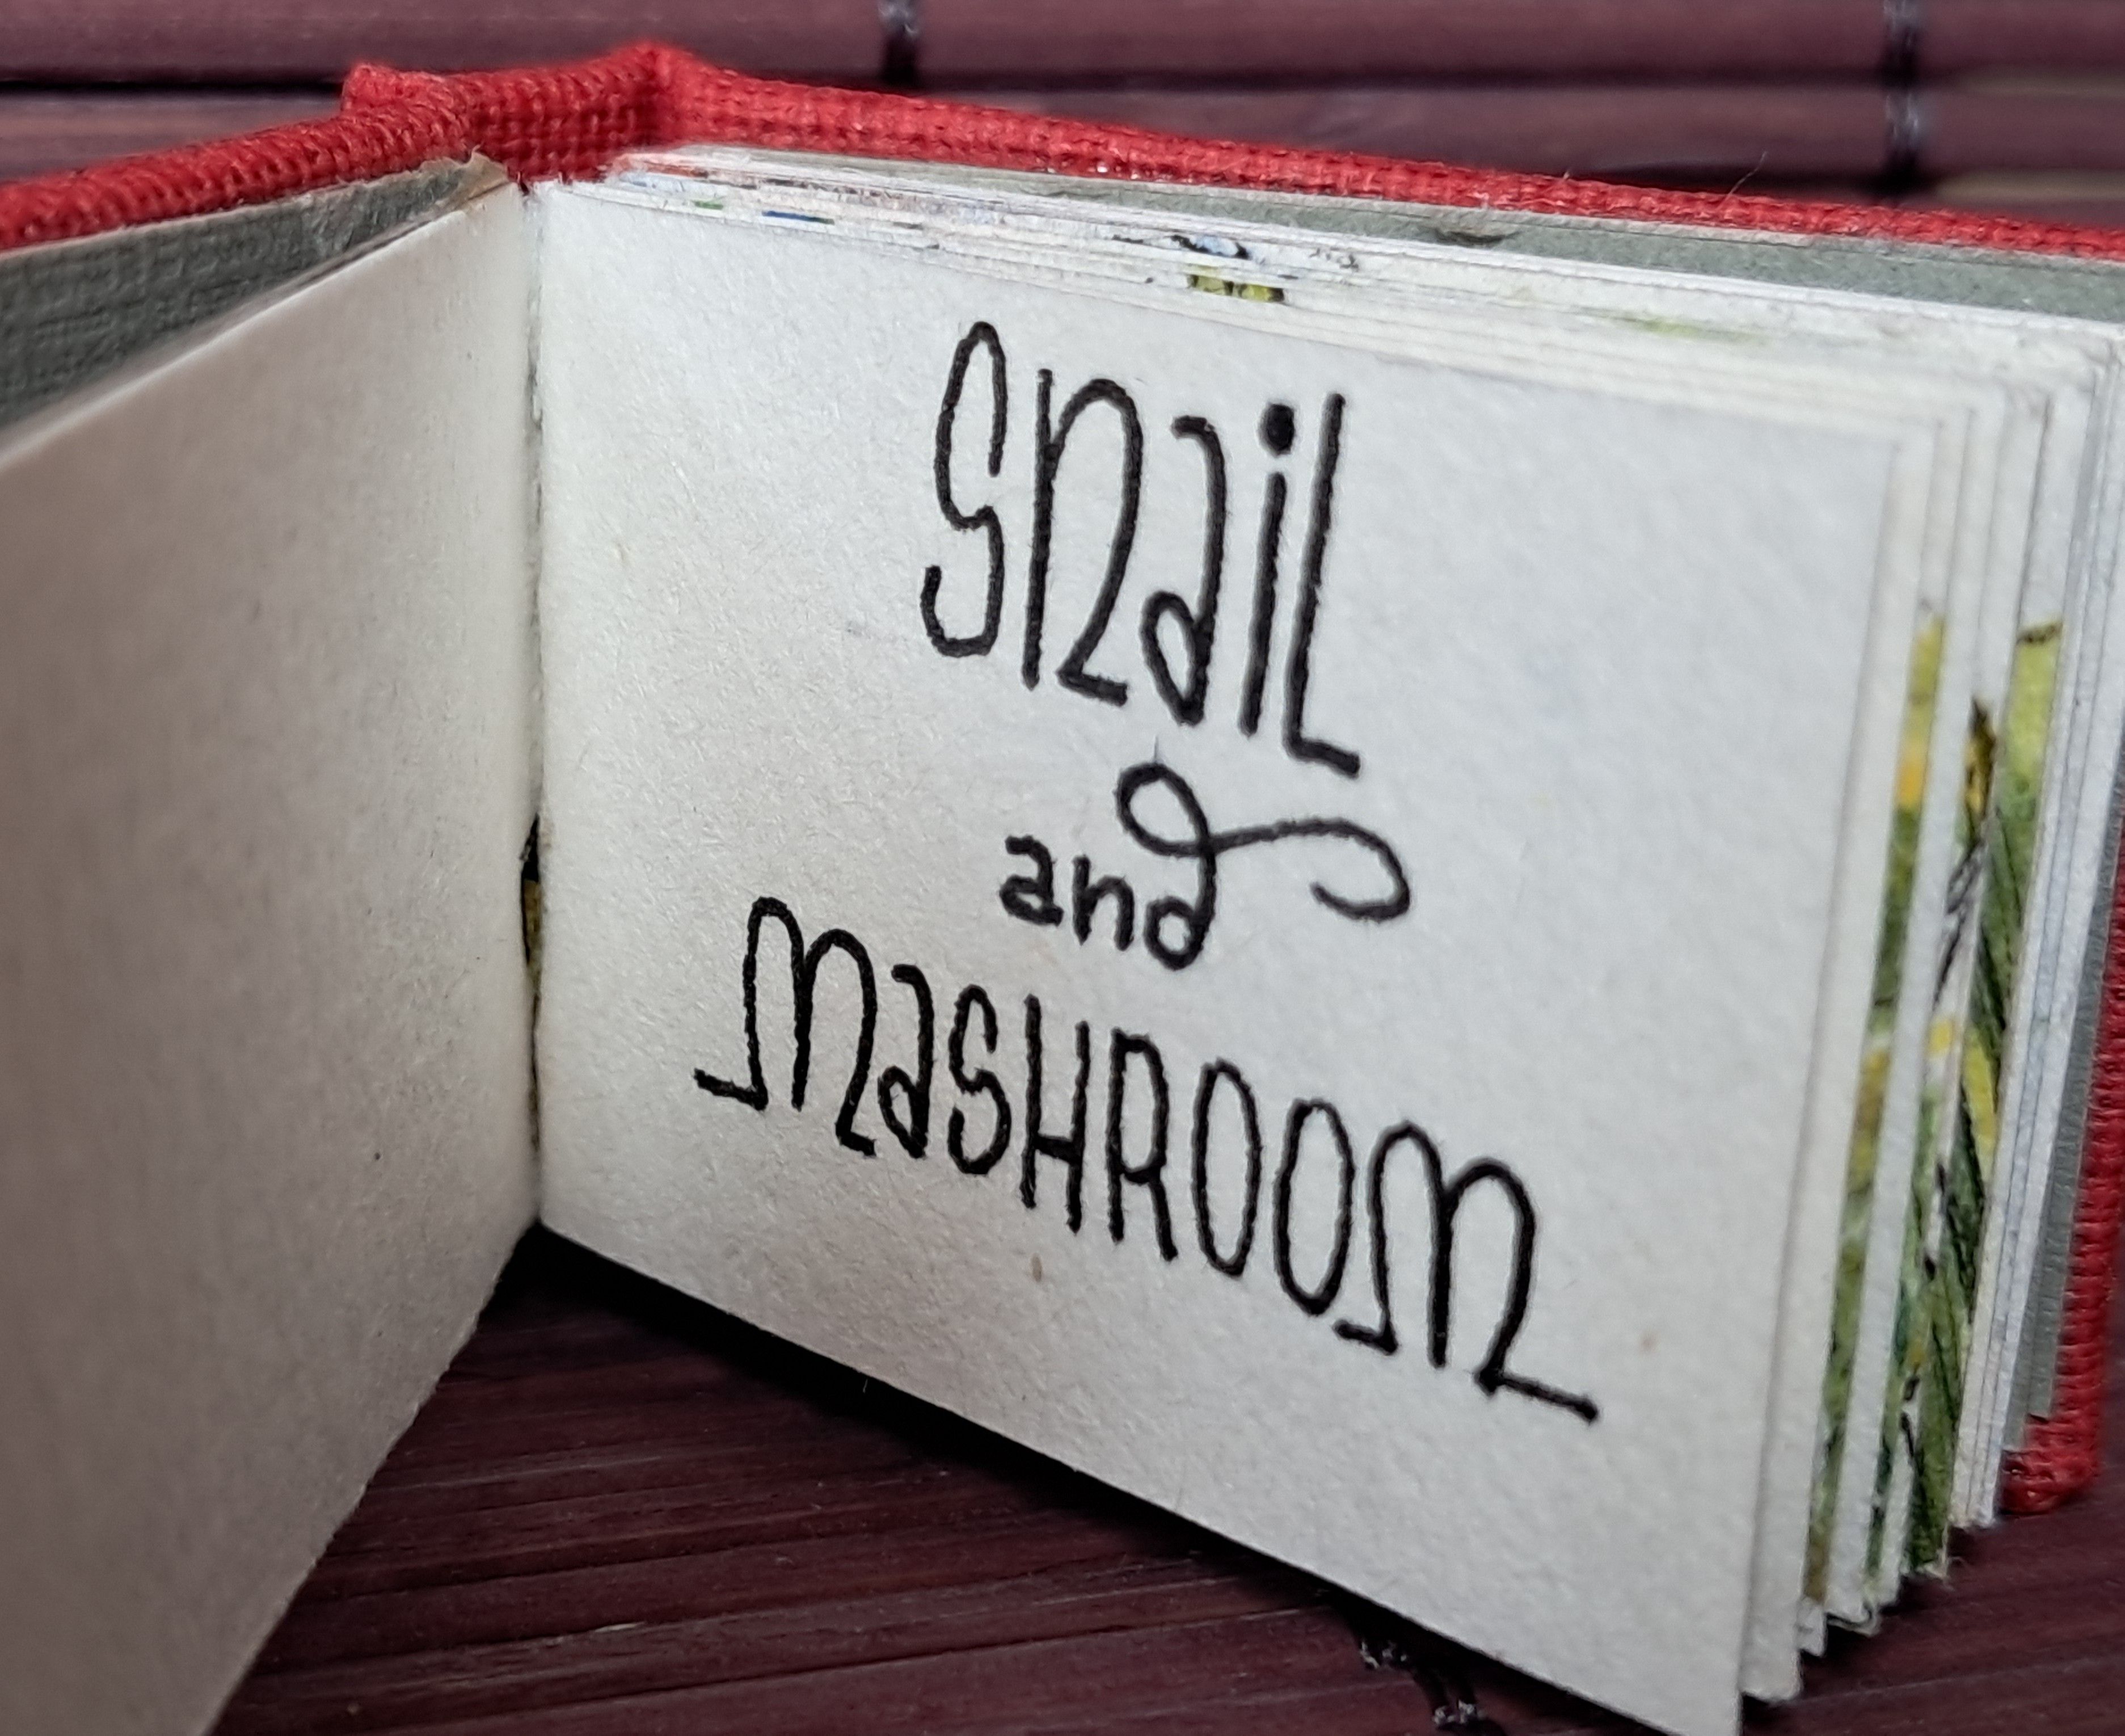 SnaiL
and
MaSHROOM